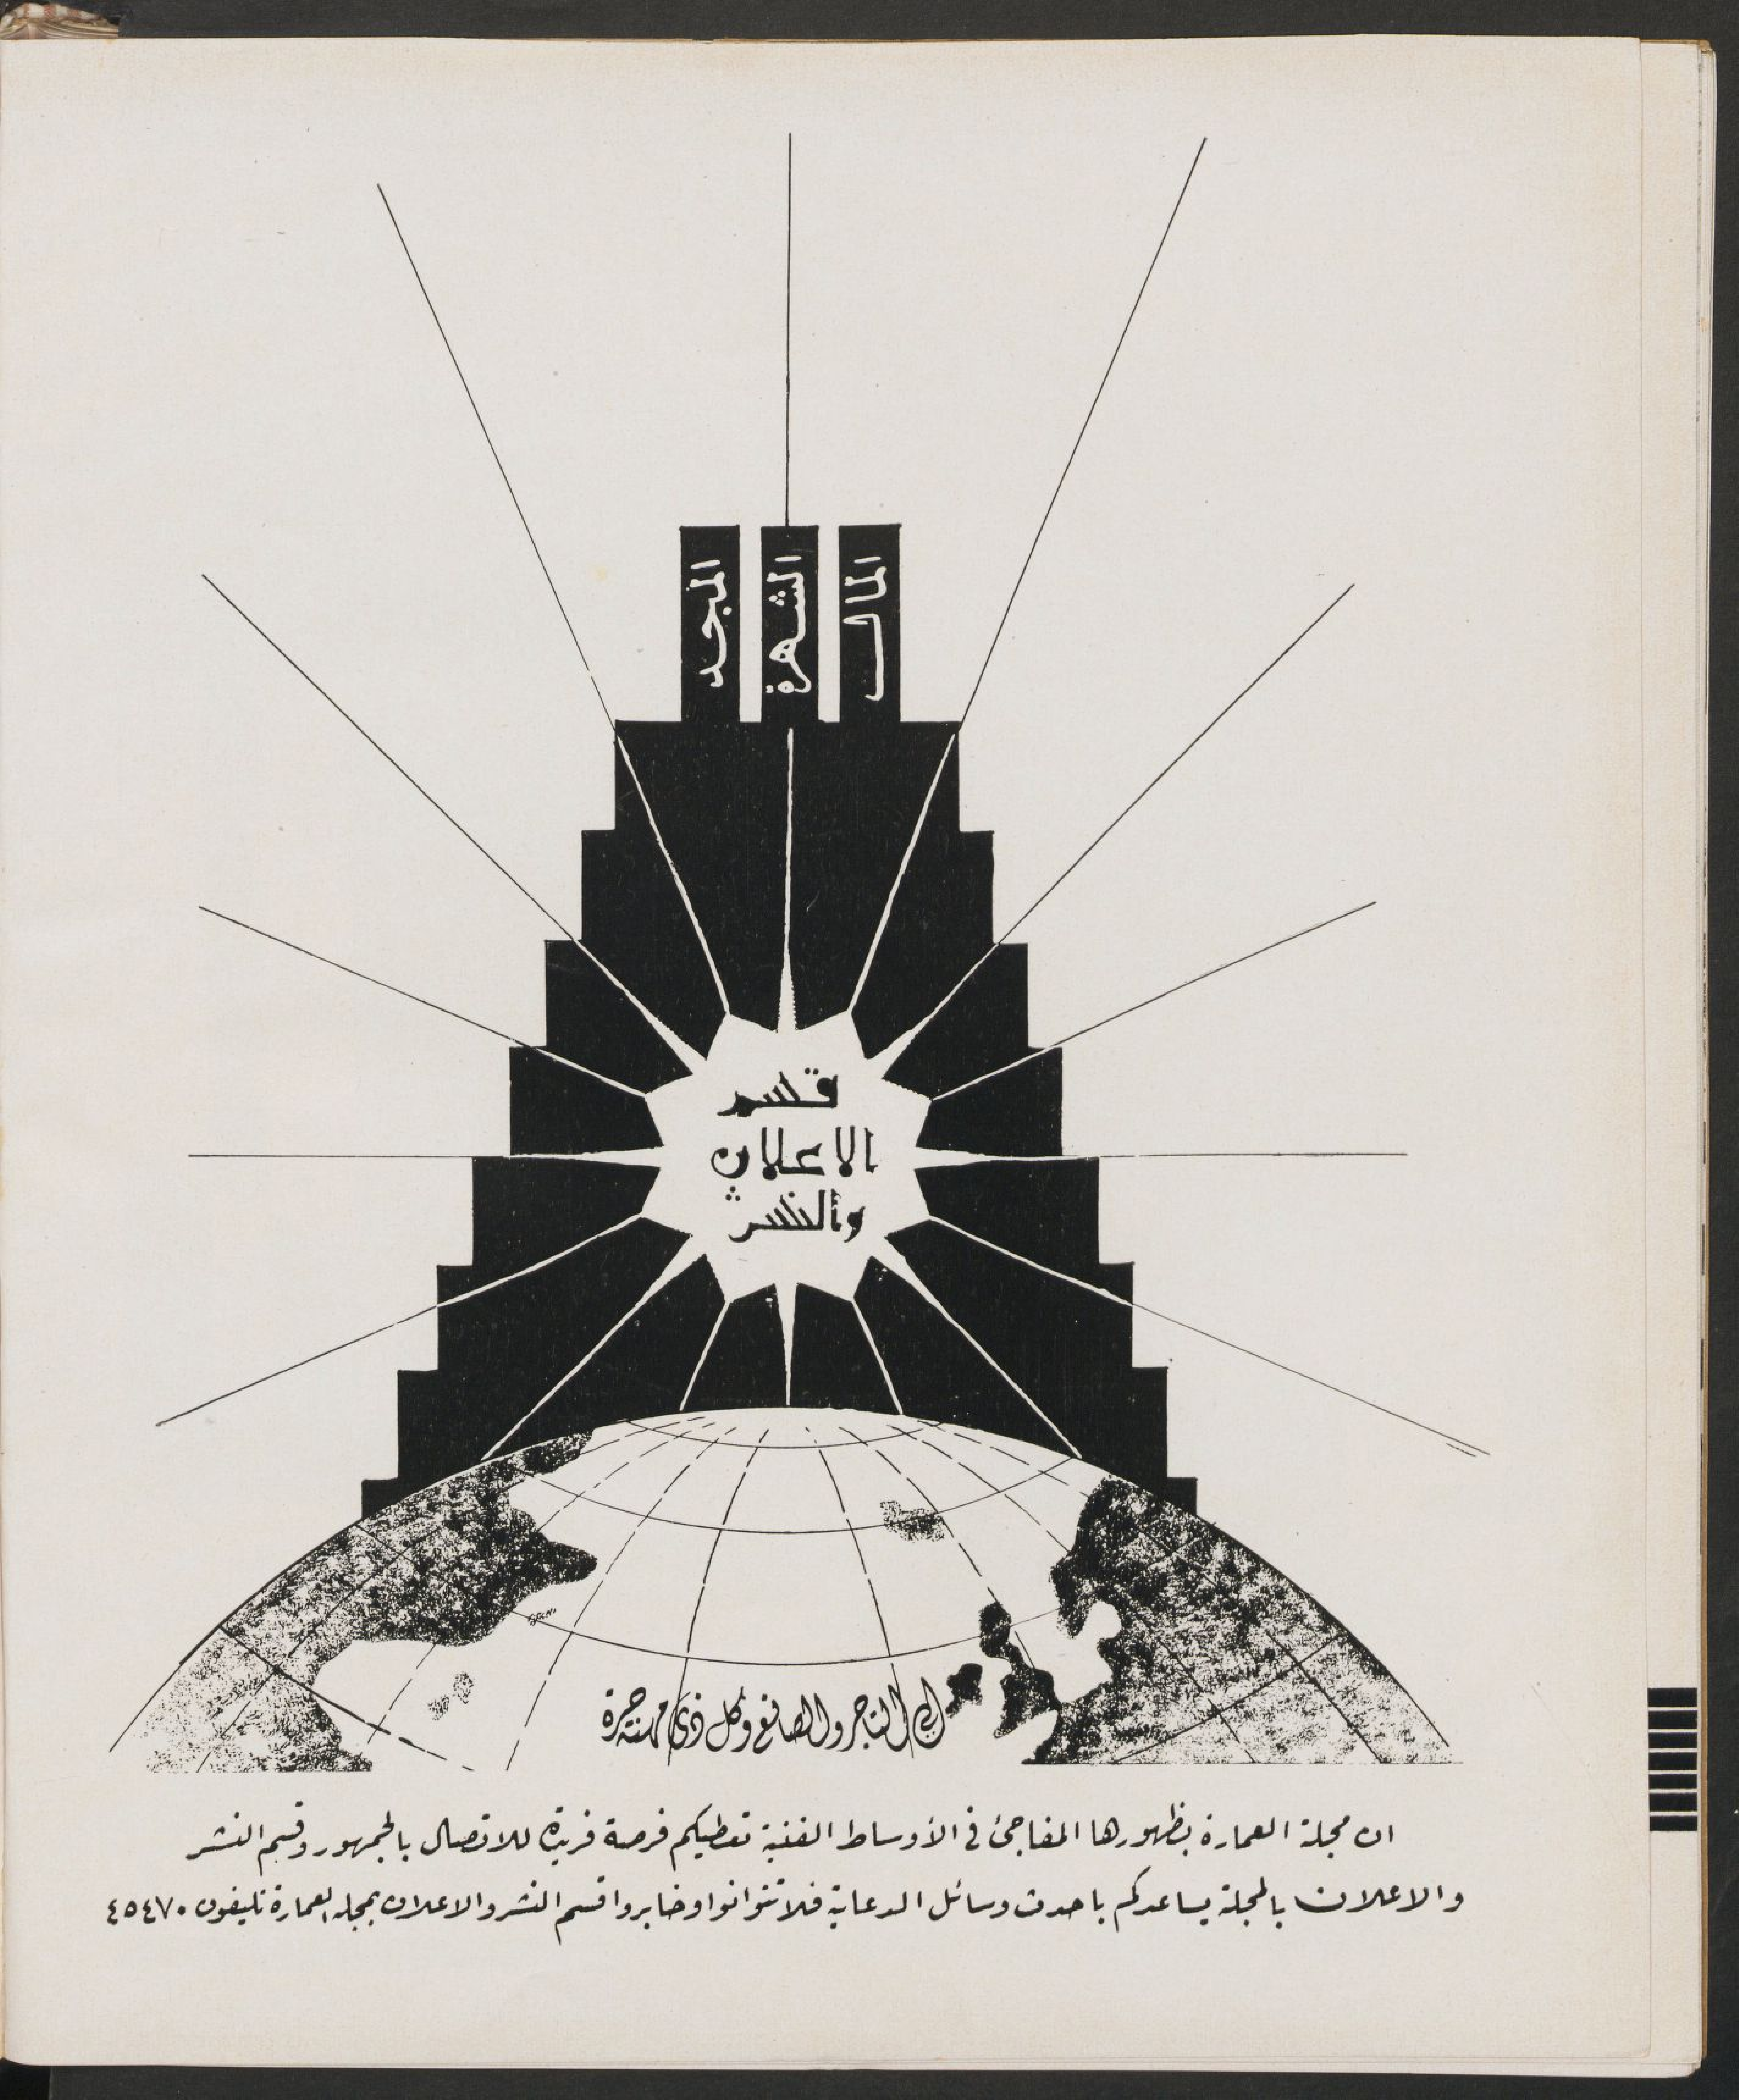 المال
الشهرة
المجد
قسم
الاعلان
والنشر
الى التاجر والصانع وكل ذى مهنة حرة
ان مجلة العمارة بظهورها المفاجئ فى الأوساط الفنية تعطيكم فرصة فريدة للاتصال بالجمهور وقسم النشر
والاعلان بالمجلة يساعدكم باحدث وسائل الدعاية فلا تتوانوا وخابروا قسم النشر والاعلان بمجلة العمارة تليفون ٤٥٤٧٠